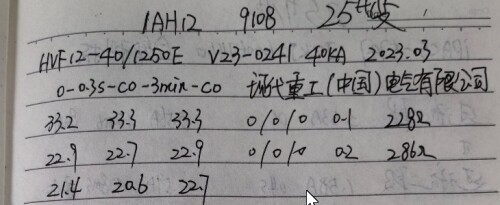 1AH12 9108 25
HVF12-40/1250E V23-0241 40KA 2023.03
0-0.3S-CO-3min-CO 现代重工(中国)电气有限公司
33.2 33.3 33.3 0/0/0 0.1 228Ω
22.9 22.7 22.9 0/0/0 0.2 286Ω
21.4 20.6 22.7